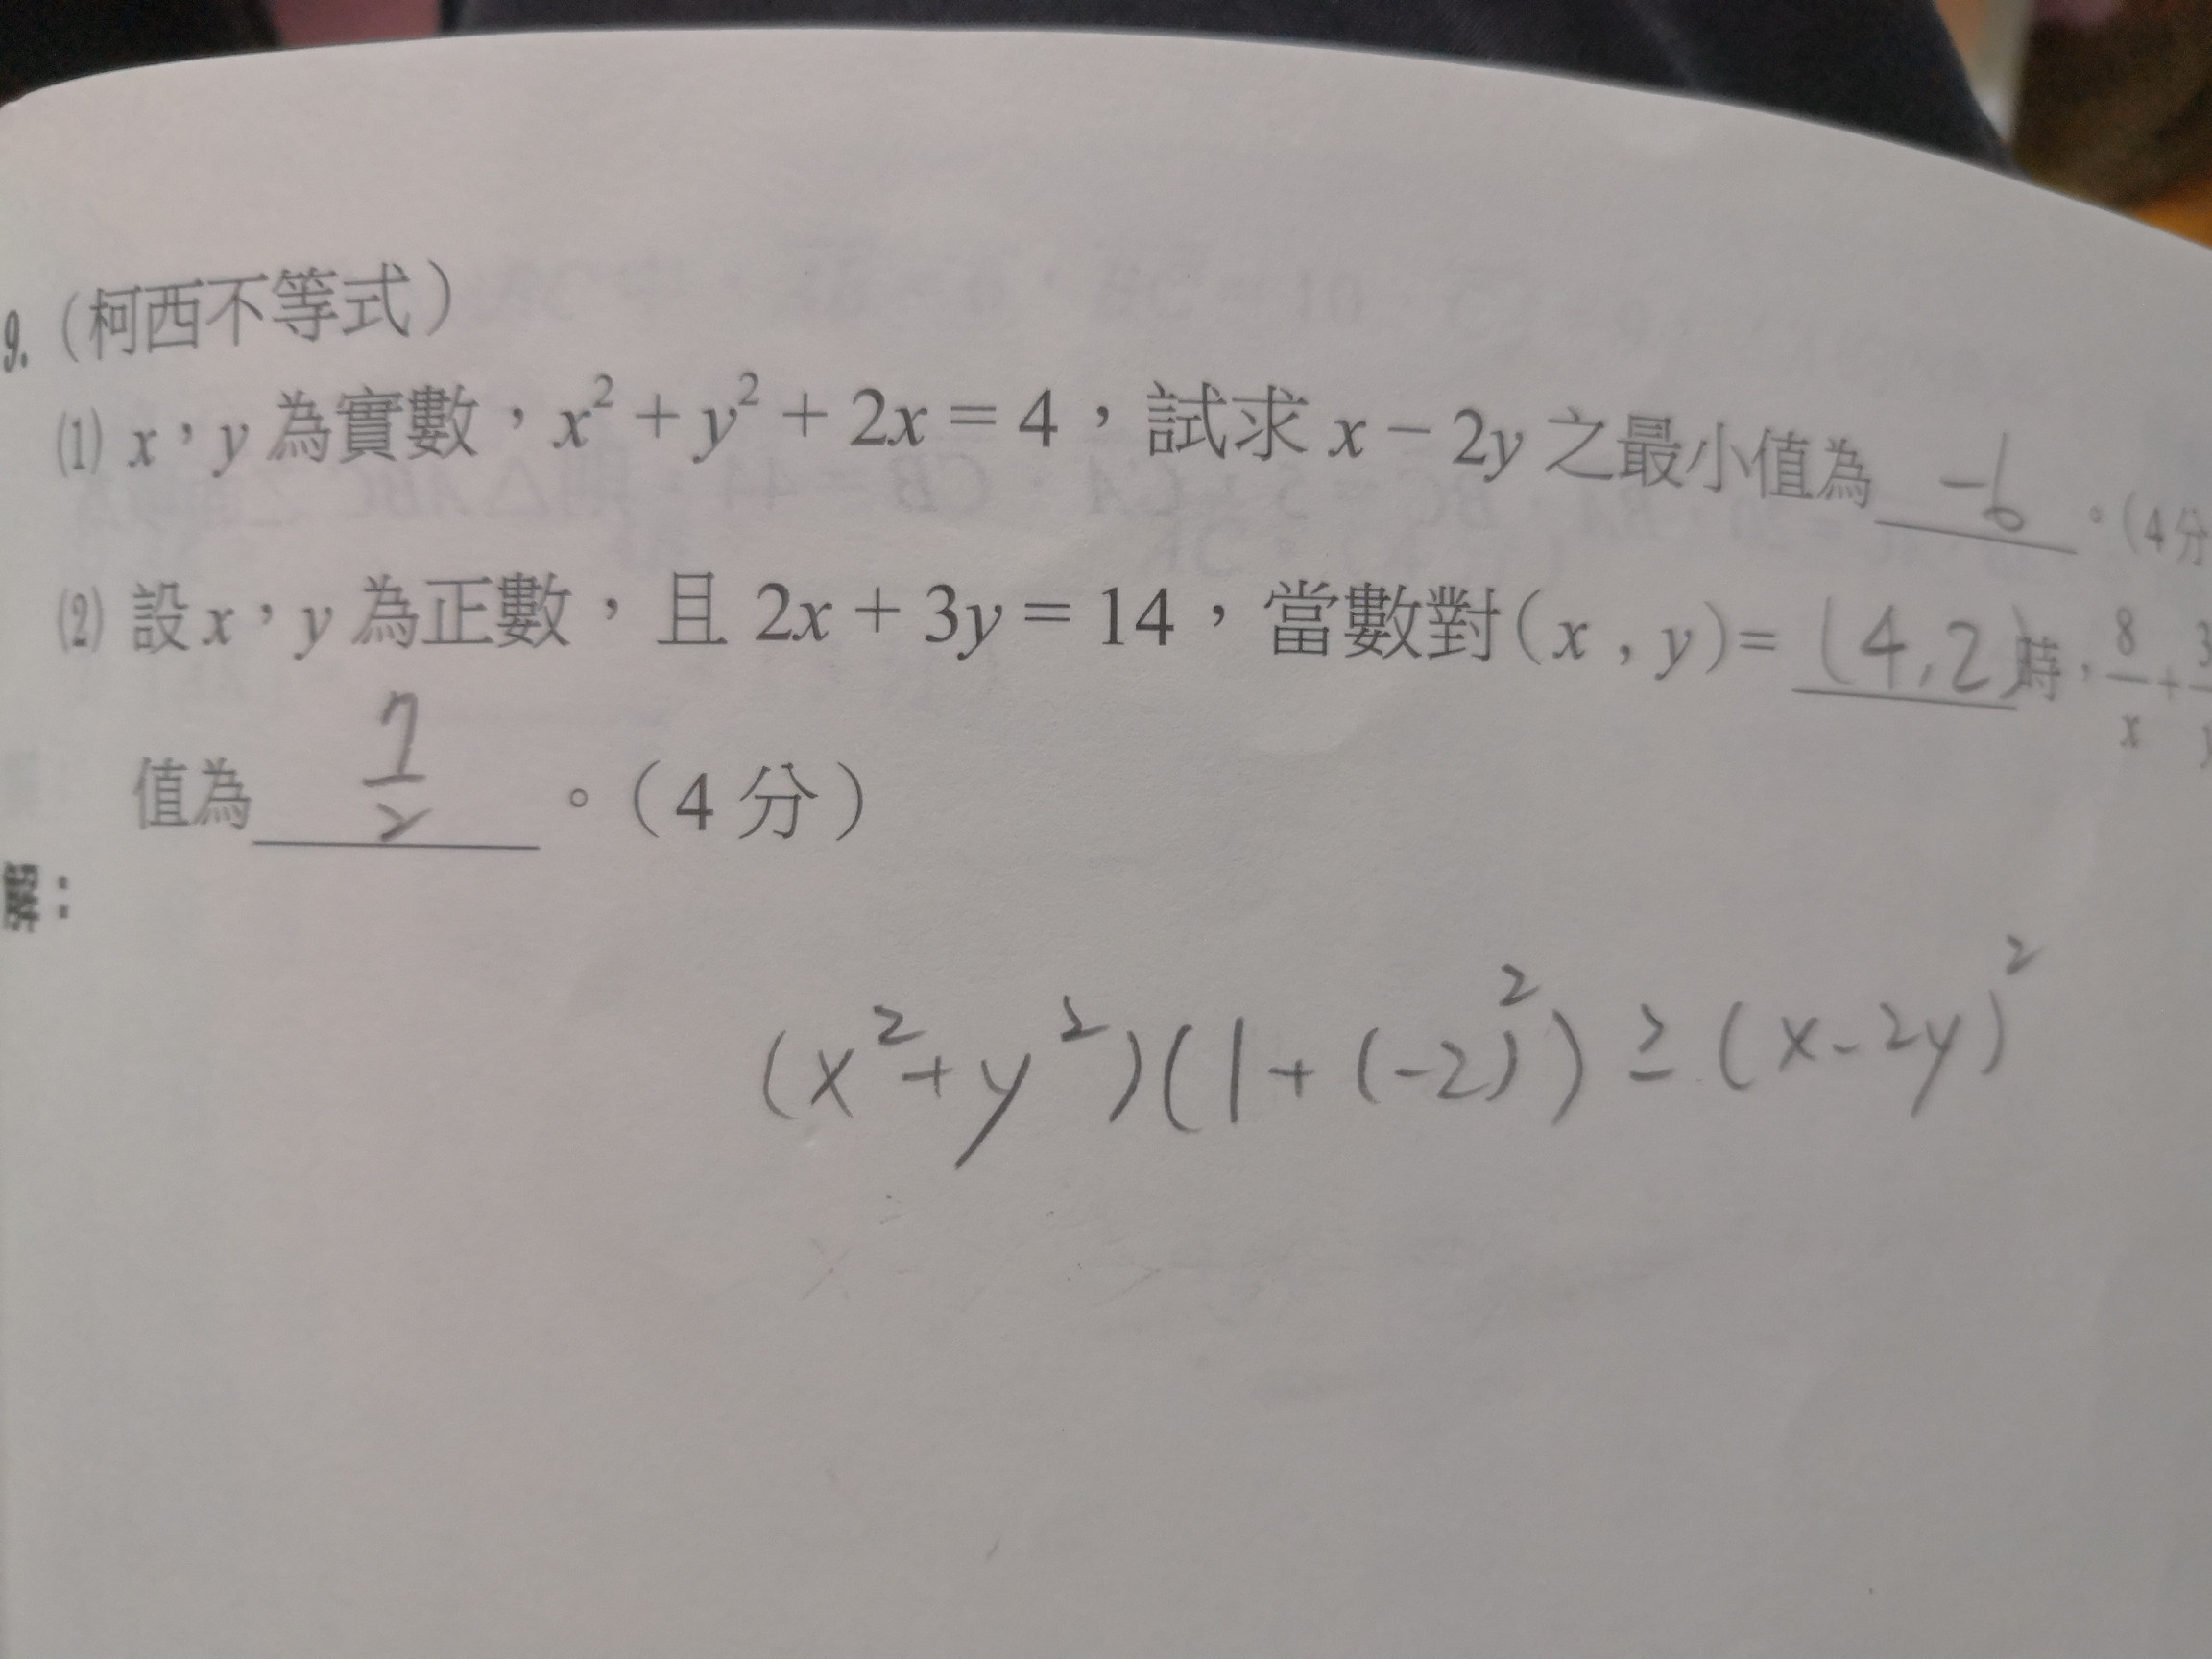 9. (柯西不等式)
(1) x，y 為實數，x² + y² + 2x = 4，試求 x − 2y 之最小值為 -6 。(4分
(2) 設 x，y 為正數，且 2x + 3y = 14，當數對 (x , y) = (4,2) 時，8/x + 3/y
值為 7/2 。(4 分)
解：
(x²+y²)(1+(-2)²) ≥ (x-2y)²